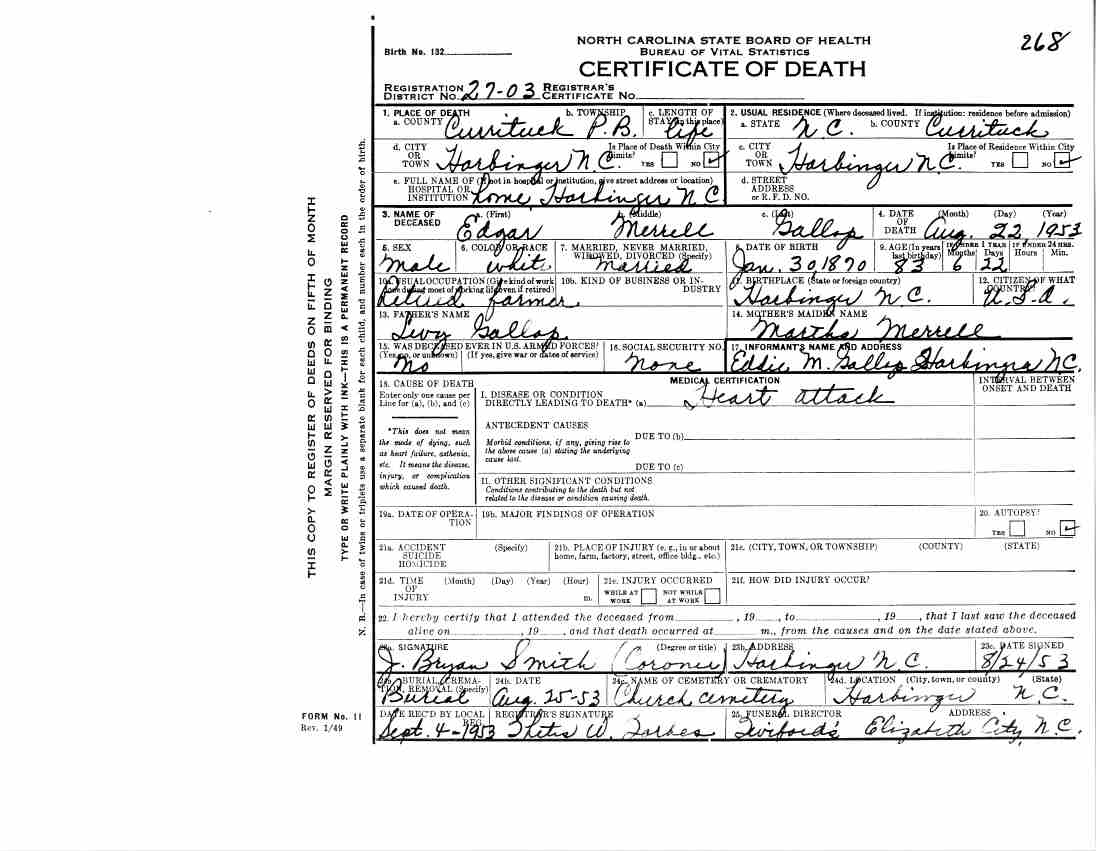 268
Birth No. 132
NORTH CAROLINA STATE BOARD OF HEALTH
BUREAU OF VITAL STATISTICS
CERTIFICATE OF DEATH
REGISTRATION DISTRICT No. 27-03 REGISTRAR'S CERTIFICATE No.
1. PLACE OF DEATH
a. COUNTY Currituck
b. TOWNSHIP P.B.
c. LENGTH OF STAY (in this place) life
2. USUAL RESIDENCE (Where deceased lived. If institution: residence before admission)
a. STATE N C. b. COUNTY Currituck
d. CITY OR TOWN Harbinger N C.
Is Place of Death Within City Limits? YES NO ✓
c. CITY OR TOWN Harbinger N C.
Is Place of Residence Within City Limits? YES NO ✓
e. FULL NAME OF (If not in hospital or institution, give street address or location)
HOSPITAL OR INSTITUTION Home Harbinger N C
d. STREET ADDRESS or R. F. D. NO.
3. NAME OF DECEASED
a. (First) Edgar
b. (Middle) Merrell
c. (Last) Gallop
4. DATE OF DEATH (Month) (Day) (Year) Aug. 22, 1953
5. SEX Male
6. COLOR OR RACE white
7. MARRIED, NEVER MARRIED, WIDOWED, DIVORCED (Specify) married
8. DATE OF BIRTH Jan. 30 1870
9. AGE (In years last birthday) 83
IF UNDER 1 YEAR Months 6 Days 22
IF UNDER 24 HRS. Hours Min.
10a. USUAL OCCUPATION (Give kind of work done during most of working life, even if retired) Retired farmer
10b. KIND OF BUSINESS OR INDUSTRY
11. BIRTHPLACE (State or foreign country) Harbinger N C.
12. CITIZEN OF WHAT COUNTRY? U.S.A.
13. FATHER'S NAME Levy Gallop
14. MOTHER'S MAIDEN NAME Martha Merrell
15. WAS DECEASED EVER IN U.S. ARMED FORCES?
(Yes, no, or unknown) (If yes, give war or dates of service) No
16. SOCIAL SECURITY NO. None
17. INFORMANT'S NAME AND ADDRESS Eddie M. Gallop Harbinger NC.
18. CAUSE OF DEATH
Enter only one cause per Line for (a), (b), and (c)
*This does not mean the mode of dying, such as heart failure, asthenia, etc. It means the disease, injury, or complication which caused death.
MEDICAL CERTIFICATION
INTERVAL BETWEEN ONSET AND DEATH
I. DISEASE OR CONDITION DIRECTLY LEADING TO DEATH* (a) Heart attack
ANTECEDENT CAUSES
Morbid conditions, if any, giving rise to the above cause (a) stating the underlying cause last.
DUE TO (b)
DUE TO (c)
II. OTHER SIGNIFICANT CONDITIONS
Conditions contributing to the death but not related to the disease or condition causing death.
19a. DATE OF OPERATION
19b. MAJOR FINDINGS OF OPERATION
20. AUTOPSY? YES NO ✓
21a. ACCIDENT SUICIDE HOMICIDE (Specify)
21b. PLACE OF INJURY (e. g., in or about home, farm, factory, street, office bldg., etc.)
21c. (CITY, TOWN, OR TOWNSHIP) (COUNTY) (STATE)
21d. TIME OF INJURY (Month) (Day) (Year) (Hour) m.
21e. INJURY OCCURRED WHILE AT WORK NOT WHILE AT WORK
21f. HOW DID INJURY OCCUR?
22. I hereby certify that I attended the deceased from , 19 , to , 19 , that I last saw the deceased
alive on , 19 , and that death occurred at m., from the causes and on the date stated above.
23a. SIGNATURE (Degree or title) J. Bryan Smith (Coroner)
23b. ADDRESS Harbinger N. C.
23c. DATE SIGNED 8/24/53
24a. BURIAL, CREMATION, REMOVAL (Specify) Burial
24b. DATE Aug. 25-53
24c. NAME OF CEMETERY OR CREMATORY Church cemetery
24d. LOCATION (City, town, or county) (State) Harbinger N C.
DATE REC'D BY LOCAL REG. Sept. 4-1953
REGISTRAR'S SIGNATURE Thetis W. Forbes
25. FUNERAL DIRECTOR ADDRESS Twiford's Elizabeth City N.C.
FORM No. 11
Rev. 1/49
THIS COPY TO REGISTER OF DEEDS ON FIFTH OF MONTH
MARGIN RESERVED FOR BINDING
TYPE OR WRITE PLAINLY WITH INK—THIS IS A PERMANENT RECORD
N. B.—In case of twins or triplets use a separate blank for each child, and number each in the order of birth.